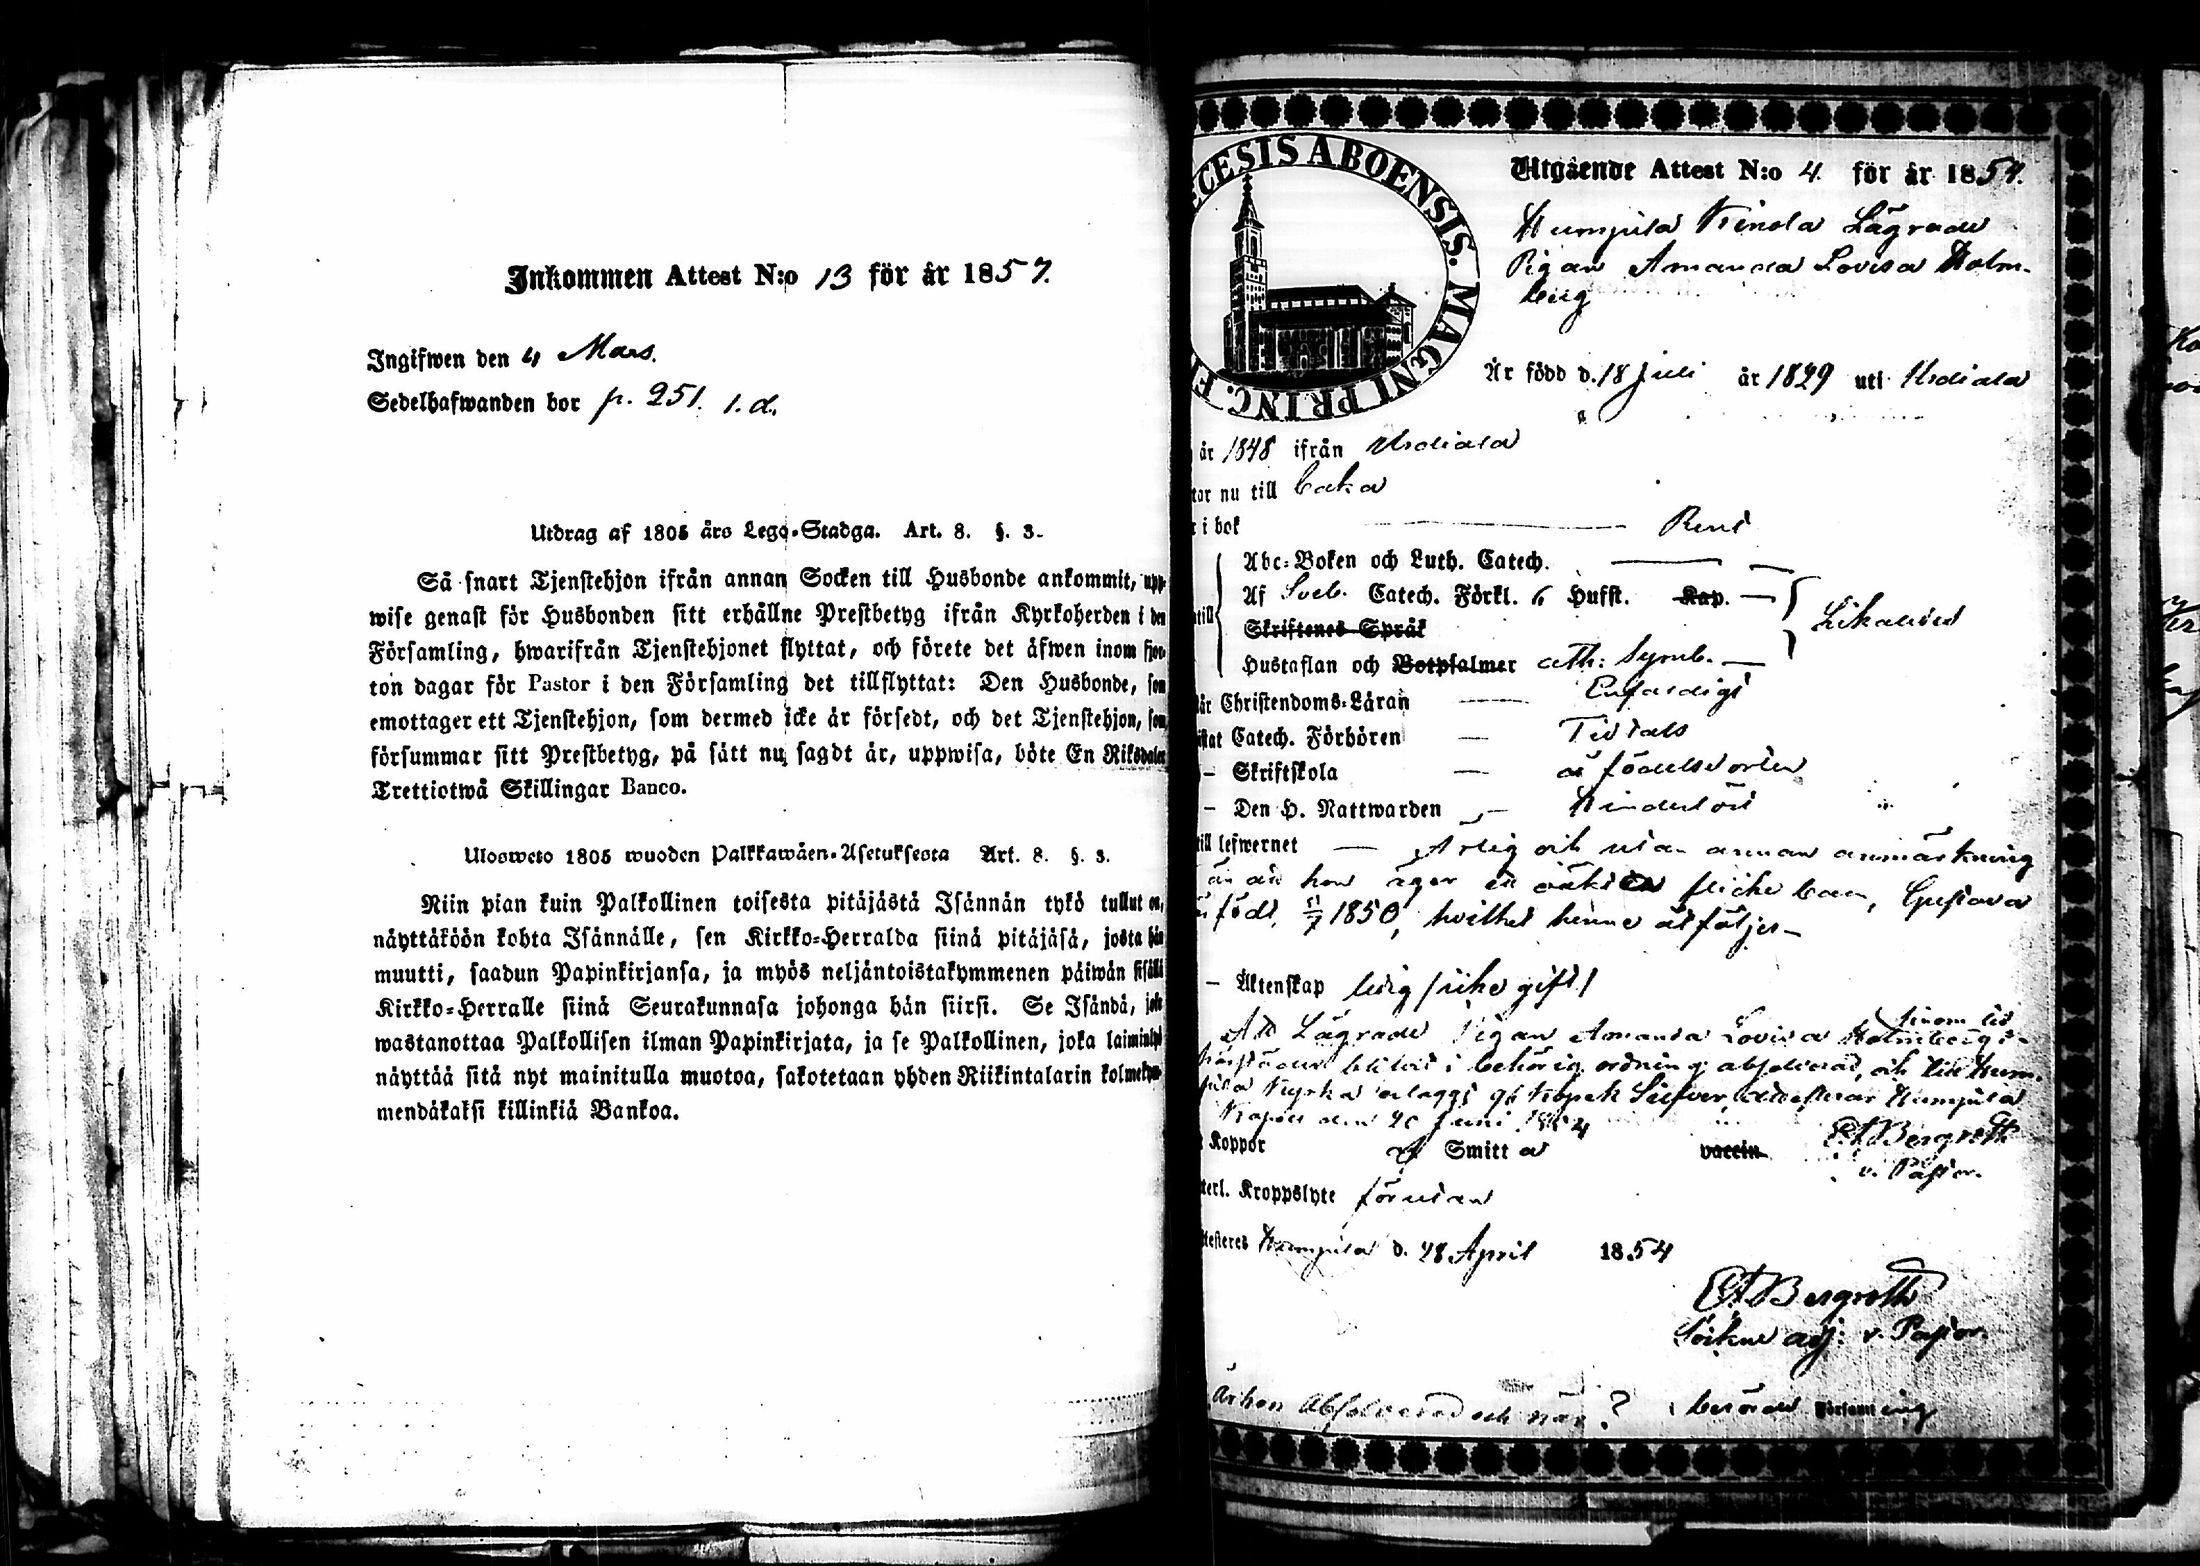 Inkommen Attest N:o 13 för år 1857.
Ingifwen den 4 Mars.
Sedelhafwanden bor p. 251. 1. d.
Utdrag af 1805 års Lego-Stadga. Art. 8. §. 3.
Så snart Tjenstehjon ifrån annan Socken till Husbonde ankommit, upp-
wise genast för Husbonden sitt erhållne Prestbetyg ifrån Kyrkoherden i den
Församling, hwarifrån Tjenstehjonet flyttat, och förete det äfwen inom fjor-
ton dagar för Pastor i den Församling det tillflyttat: Den Husbonde, som
emottager ett Tjenstehjon, som dermed icke är försedt, och det Tjenstehjon, som
försummar sitt Prestbetyg, på sätt nu sagdt är, uppwisa, böte En Riksdaler
Trettiotwå Skillingar Banco.
Ulosweto 1805 wuoden Palkkawäen-Asetuksesta Art. 8. §. 3.
Niin pian kuin Palkollinen toisesta pitäjästä Isännän tykö tullut on,
näyttäköön kohta Isännälle, sen Kirkko-Herralda siinä pitäjäsä, josta hän
muutti, saadun Papinkirjansa, ja myös neljäntoistakymmenen päiwän sisällä
Kirkko-Herralle siinä Seurakunnasa johonga hän siirsi. Se Isändä, joka
wastanottaa Palkollisen ilman Papinkirjata, ja se Palkollinen, joka laiminlyö
näyttää sitä nyt mainitulla muotoa, sakotetaan yhden Riikintalarin kolmekym-
mendäkaksi killinkiä Bankoa.
ECESIS ABOENSIS. MAGNI PRINC. F
Utgående Attest N:o 4 för år 1854.
Humpila Lägrade
Pigan Amanda Lovisa Holm-
berg
Är född d. 18 Juli år 1829 uti Urdiala
år 1848 ifrån Urdiala
tar nu till
i bok Rent
Abc-Boken och Luth. Catech.
Af Sveb. Catech. Förkl. 6 Hufst. Kap.
Skriftenes Språk
Hustaflan och Botpsalmer ath: Symb.
Likaledes
Christendoms-Läran Enfaldigt
Catech. Förhören
Skriftskola å födelseorten
Den H. Nattwarden Hinderlöst
till lefwernet Ärlig och utan annan anmärkning
än att hon äger ett oäkta flicke barn, Gustava
född 1850, hvilket henne åtföljer
Äktenskap ledig /icke gift/
Att Lägrade Pigan Amanda Lovisa Holmbergs
blifvit i behörig ordning absolverad, och till Hum-
pila Kyrka erlaggt Kopek Silfver, attesterar Humpila
Juni 1854
EABergroth
v. Pastor.
Koppor Smitt a vaccin
Kroppslyte förutan
Humpila d. 28 April 1854
EABergroth
adj. v. Pastor.
Är hon Absolverad och när? berörde Församling